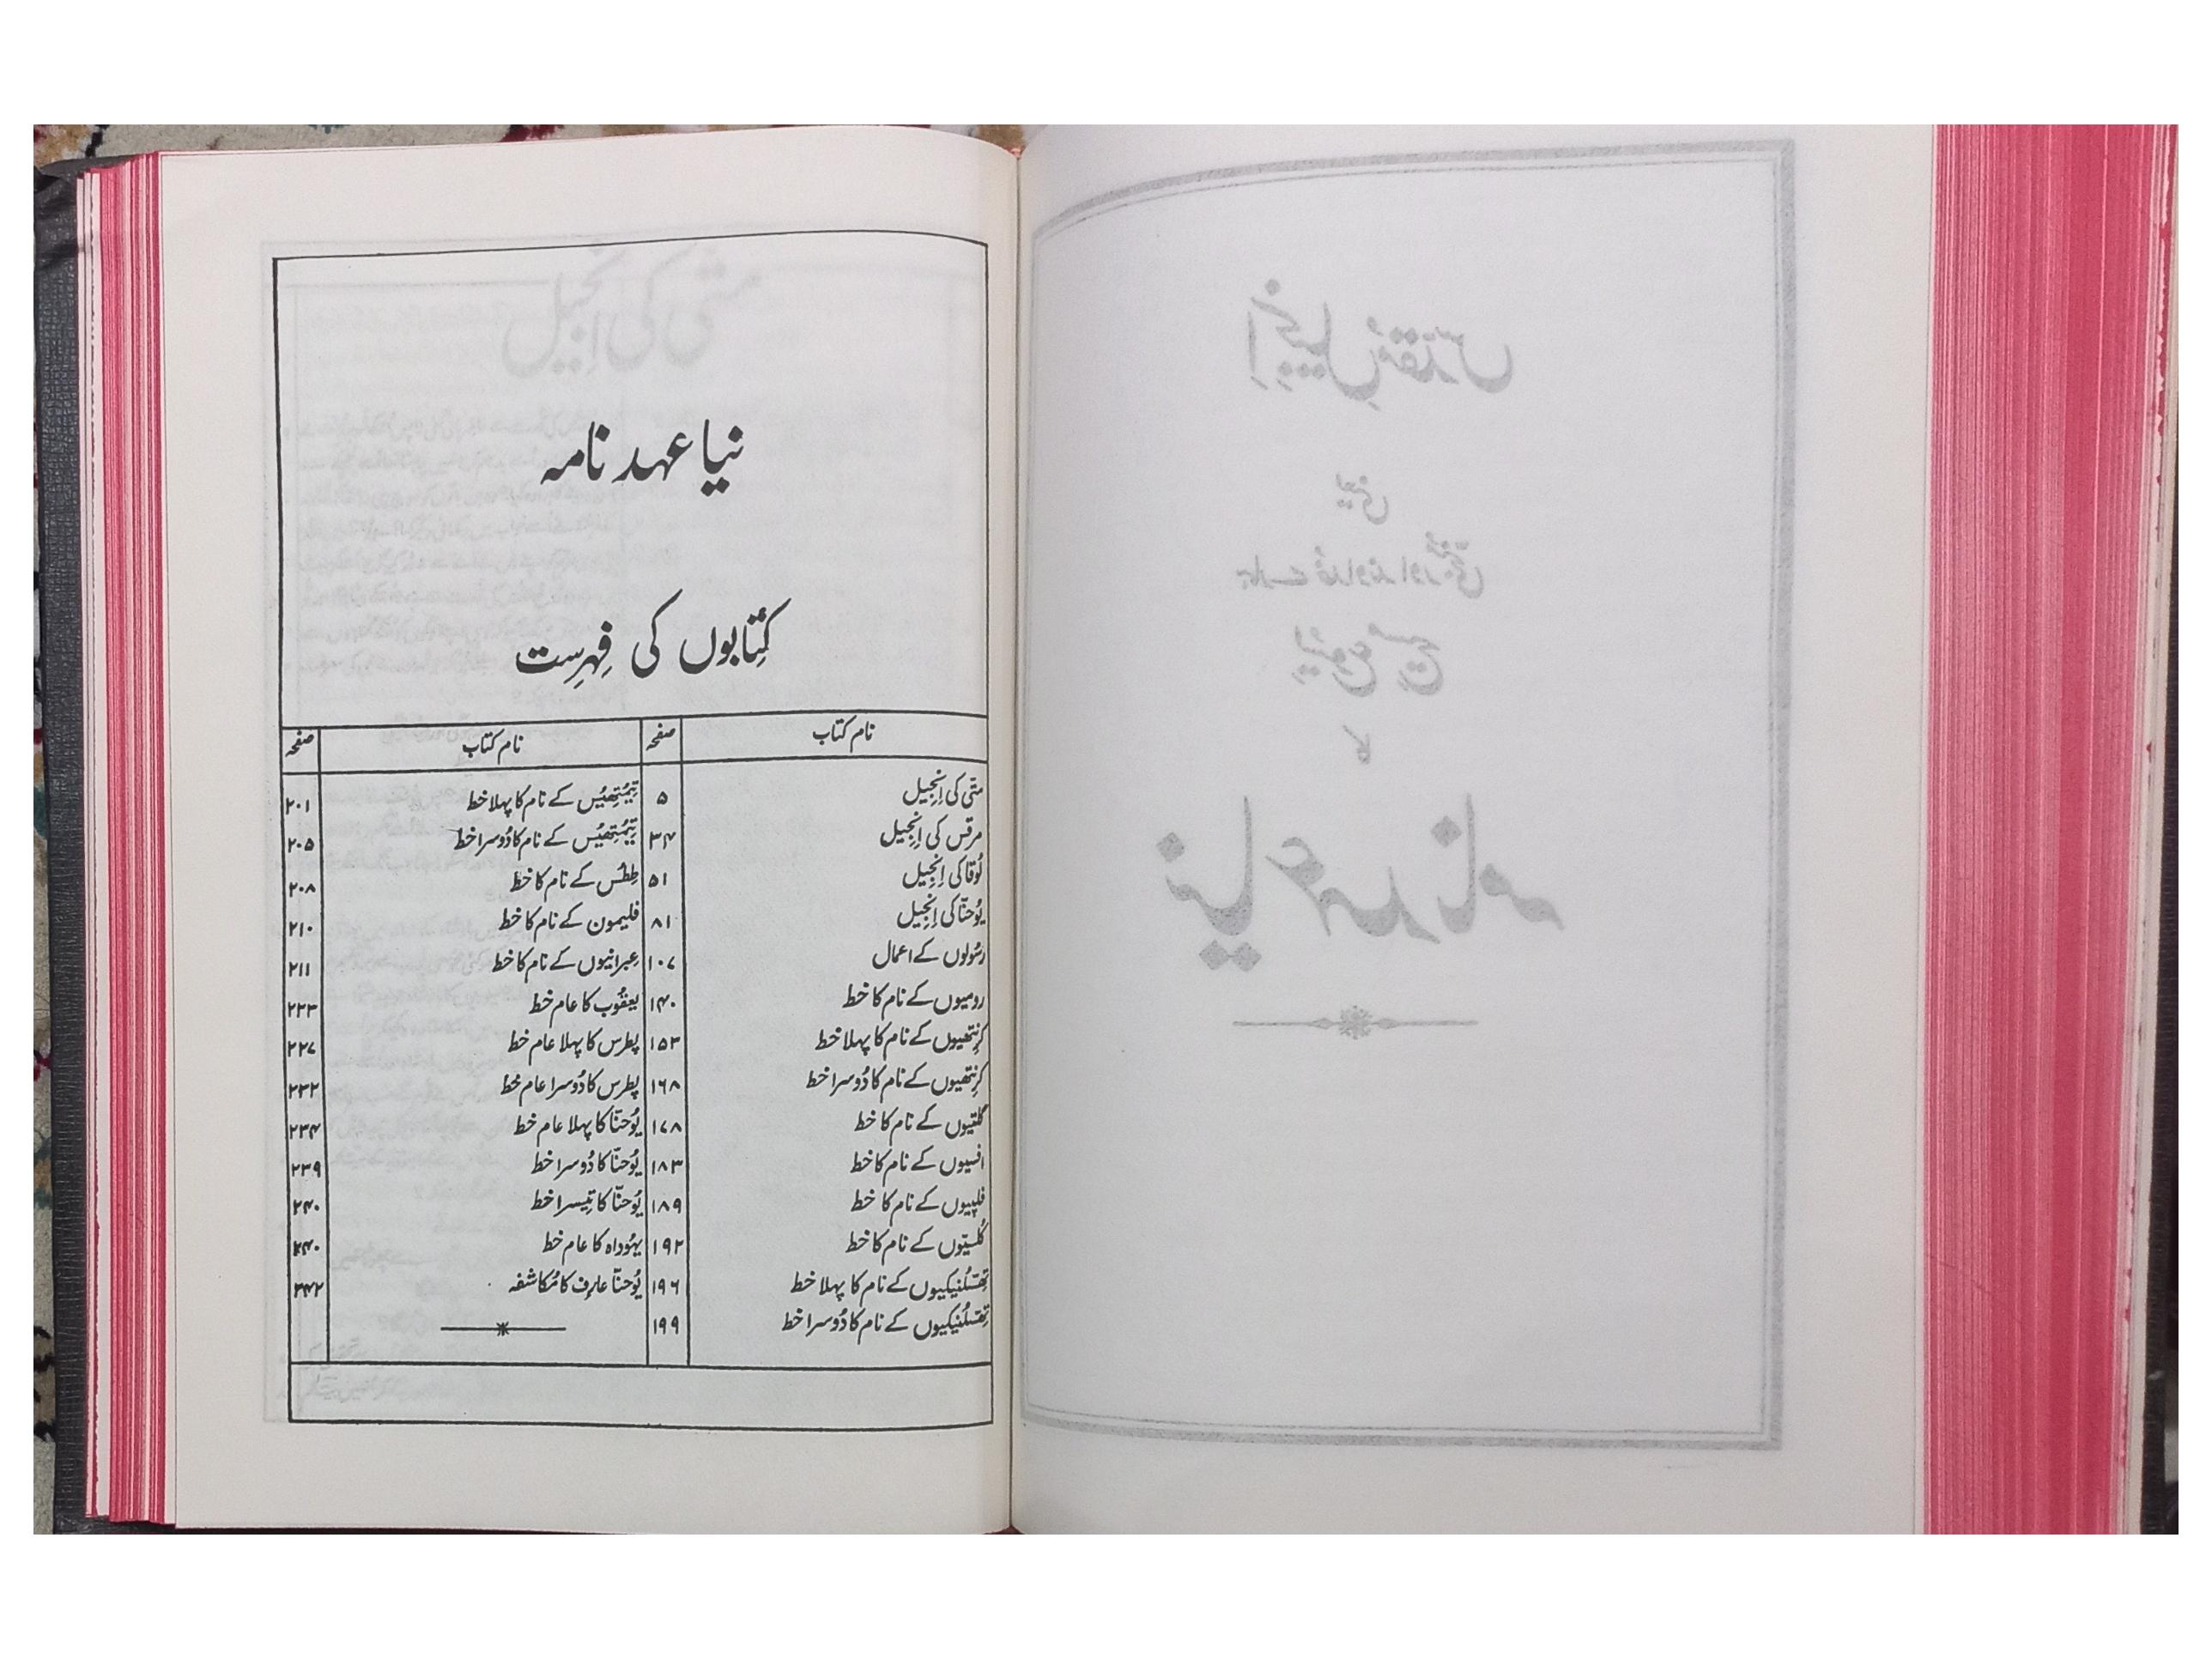 نیا عہد نامہ
کِتابوں کی فِہرِست
نام کتاب صفحہ نام کتاب صفحہ
متّی کی اِنجِیل ۵ تِیمُتِھیُس کے نام کا پہلا خط ۲۰۱
مرقس کی اِنجِیل ۳۴ تِیمُتِھیُس کے نام کا دُوسرا خط ۲۰۵
لُوقا کی اِنجِیل ۵۱ طِطُس کے نام کا خط ۲۰۸
یُوحنّا کی اِنجِیل ۸۱ فلیمون کے نام کا خط ۲۱۰
رسُولوں کے اعمال ۱۰۷ عِبرانیوں کے نام کا خط ۲۱۱
رومیوں کے نام کا خط ۱۴۰ یعقُوب کا عام خط ۲۲۳
کرِنتھیوں کے نام کا پہلا خط ۱۵۳ پطرس کا پہلا عام خط ۲۲۷
کرِنتھیوں کے نام کا دُوسرا خط ۱۶۸ پطرس کا دُوسرا عام خط ۲۳۲
گلتیوں کے نام کا خط ۱۷۸ یُوحنّا کا پہلا عام خط ۲۳۴
افسیوں کے نام کا خط ۱۸۳ یُوحنّا کا دُوسرا خط ۲۳۹
فلپیوں کے نام کا خط ۱۸۹ یُوحنّا کا تِیسرا خط ۲۴۰
کُلسّیوں کے نام کا خط ۱۹۲ یہُوداہ کا عام خط ۲۴۰
تھِسّلُنیکیوں کے نام کا پہلا خط ۱۹۶ یُوحنّا عارِف کا مُکاشفہ ۲۴۲
تھِسّلُنیکیوں کے نام کا دُوسرا خط ۱۹۹